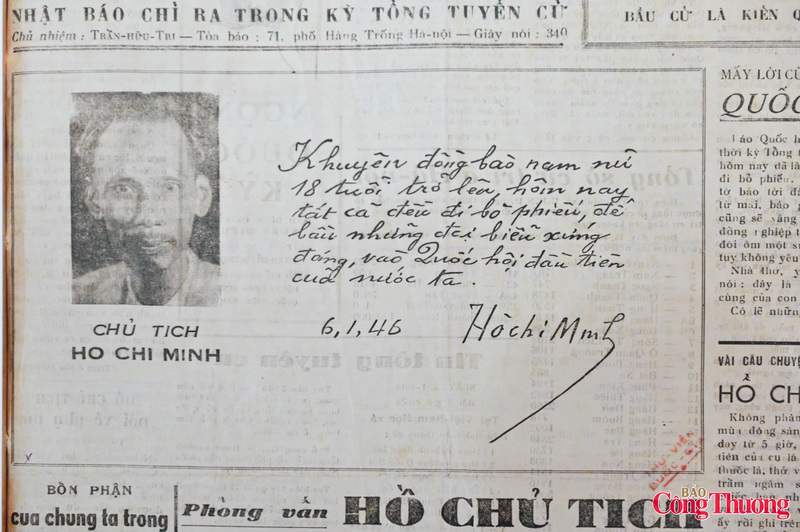 NHẬT BÁO CHỈ RA TRONG KỲ TỔNG TUYỂN CỬ
Chủ nhiệm : TRẦN-HỮU-TRI — Tòa báo : 71, phố Hàng Trống Hà-nội — Giây nói : 340
BẦU CỬ LÀ KIẾN Q
Khuyên đồng bào nam nữ
18 tuổi trở lên, hôm nay
tất cả đều đi bỏ phiếu, để
bầu những đại biểu xứng
đáng, vào Quốc hội đầu tiên
của nước ta.
6.1.46
Hồ Chí Minh
CHỦ TỊCH
HO CHI MINH
MẤY LỜI CỦ
QUỐC
áo Quốc h
thời kỳ Tổng t
hôm nay đã là
đi bỏ phiếu.
tờ báo tới đ
từ mai, báo
cũng sẽ
đồng nghiệp t
đòi ôm một s
tuy không yêu
Nhà thơ, y
nói : đây là
cùng của con
Có lẽ những
VÀI CÂU CHUYỆ
HỒ CH
Không phân
mùa đông sán
dạy từ 5 giờ,
tiên của cụ là
thuốc lá, thở v
trầm ngâm s
BỔN PHẬN
của chung ta trong
Phỏng vấn
HỒ CHỦ TỊCH
BÁO
Công Thương